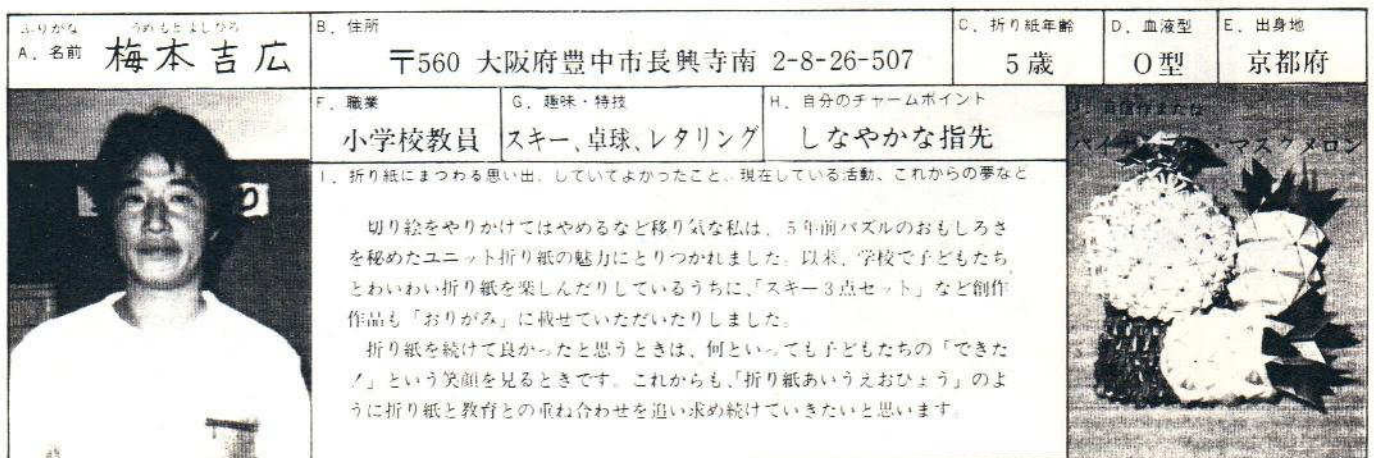 ふりがな
うめもとよしひろ
A、名前
梅本吉広
B、住所
〒560 大阪府豊中市長興寺南 2-8-26-507
C、折り紙年齢
5歳
D、血液型
O型
E、出身地
京都府
F、職業
小学校教員
G、趣味・特技
スキー、卓球、レタリング
H、自分のチャームポイント
しなやかな指先
I、折り紙にまつわる思い出、していてよかったこと、現在している活動、これからの夢など
切り絵をやりかけてはやめるなど移り気な私は、5年前パズルのおもしろさ
を秘めたユニット折り紙の魅力にとりつかれました。以来、学校で子どもたち
とわいわい折り紙を楽しんだりしているうちに、「スキー3点セット」など創作
作品も「おりがみ」に載せていただいたりしました。
折り紙を続けて良かったと思うときは、何といっても子どもたちの「できた
!」という笑顔を見るときです。これからも、「折り紙あいうえおひょう」のよ
うに折り紙と教育との重ね合わせを追い求め続けていきたいと思います。
J、自信作または
・マスクメロン